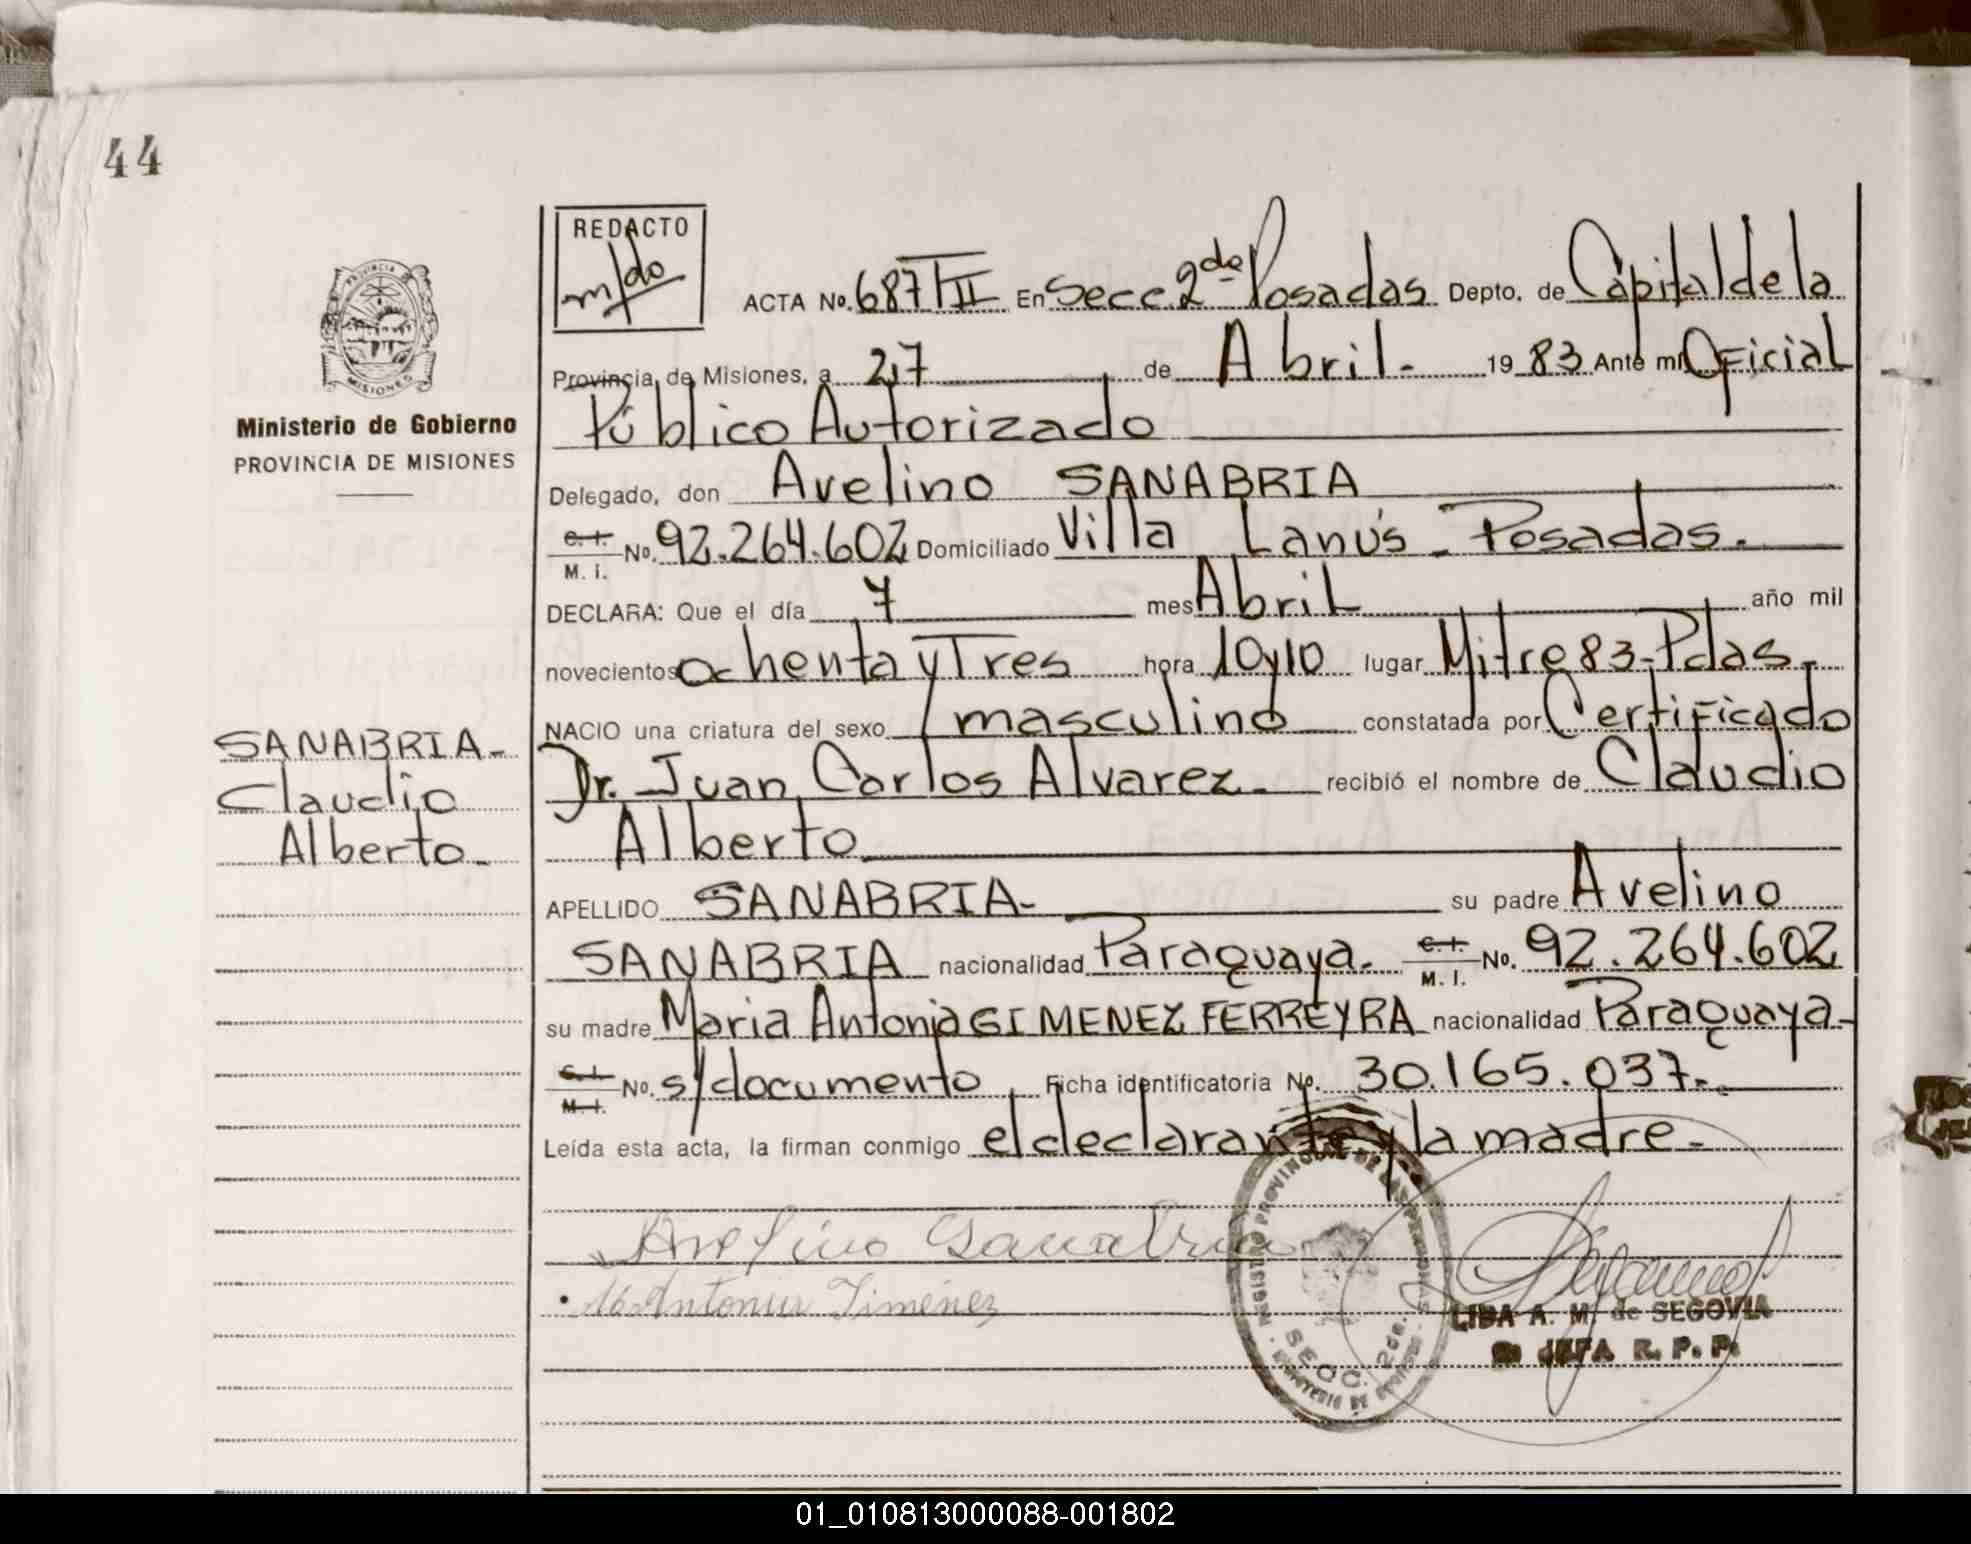 44
REDACTO
m/do
ACTA No. 687 TII En Secc. 2da Posadas Depto. de Capital de la
Provincia de Misiones, a 27 de Abril. 1983 Ante mí Oficial
Público Autorizado
Delegado, don Avelino SANABRIA
C. I. M. I. No. 92.264.602 Domiciliado Villa Lanús - Posadas.
DECLARA: Que el día 7 mes Abril año mil
novecientos ochenta y Tres hora 10y10 lugar Mitre 83-Pdas.
NACIO una criatura del sexo masculino constatada por Certificado
Dr. Juan Carlos Alvarez. recibió el nombre de Claudio
Alberto
APELLIDO SANABRIA- su padre Avelino
SANABRIA nacionalidad Paraguaya. C. I. M. I. No. 92.264.602
su madre Maria Antonia GIMENEZ FERREYRA nacionalidad Paraguaya-
C. I. M. I. No. s/documento Ficha identificatoria No. 30.165.037.-
Leída esta acta, la firman conmigo el declarante y la madre.-
Avelino Sanabria
Antonia Jiménez
PROVINCIA
MISIONES
Ministerio de Gobierno
PROVINCIA DE MISIONES
SANABRIA-
Claudio
Alberto-
REGISTRO PROVINCIAL DE LAS PERSONAS
SECC. 2da.
MINISTERIO DE GOBIERNO
LIDA A. M. de SEGOVIA
JEFA R. P. P.
01_010813000088-001802